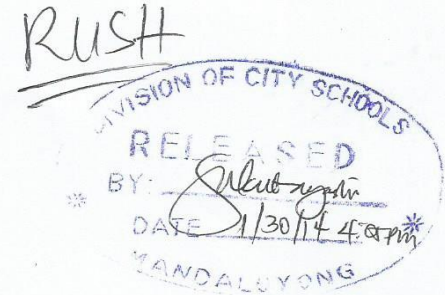 RUSH
DIVISION OF CITY SCHOOLS
RELEASED
BY:
DATE 1/30/14
MANDALUYONG